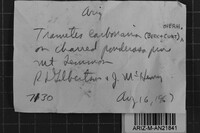 Ariz
Trametes carbonaria (Berk + Curt) OVERH.
on charred ponderosa pine
Mt Lemmon
R L Gilbertson & J McHenry
7130 Aug 16, 1967
ARIZ-M-AN21841